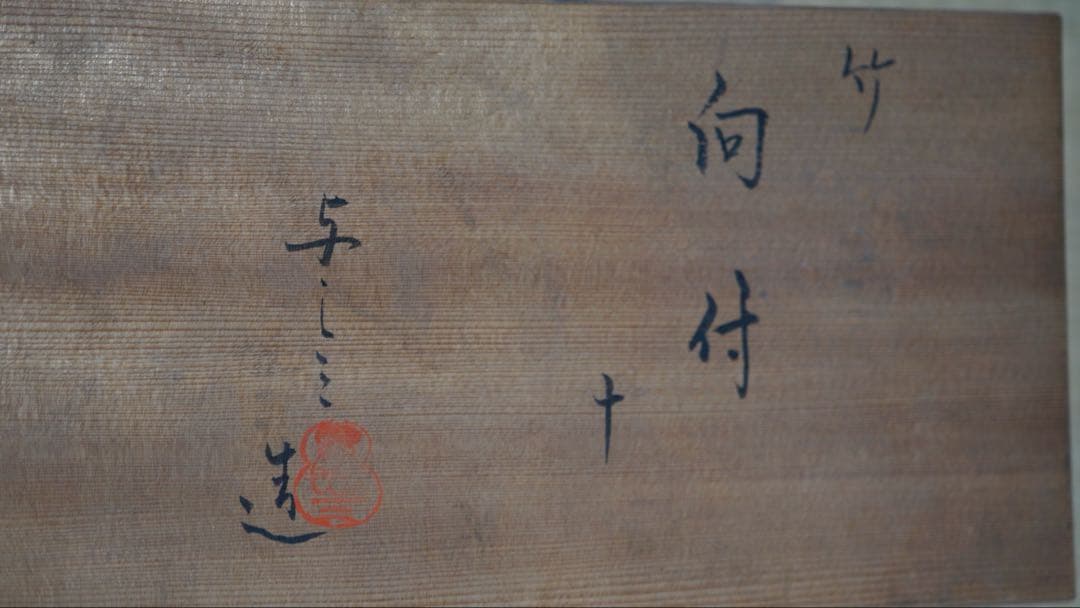 竹
向付
十
与し三造